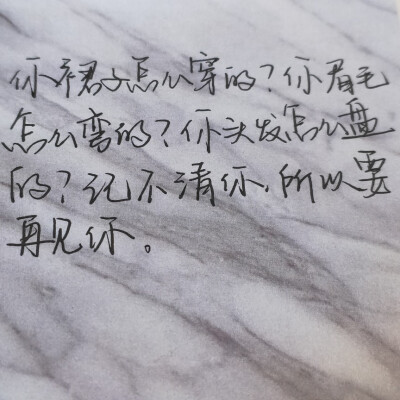 你裙子怎么穿的？你眉毛
怎么弯的？你头发怎么盘
的？记不清你，所以要
再见你。